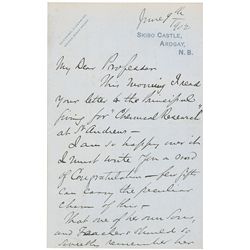 June 9th
1912
SKIBO CASTLE,
ARDGAY,
N.B.
My Dear Professor
This morning I read
your letter to the Principal
giving for "Chemical Research"
at St Andrews —
I am so happy over it
I must write you a word
of Congratulation — few gifts
can carry the peculiar
charm of this —
That one of her own Sons,
and Teachers should so
sweetly remember her